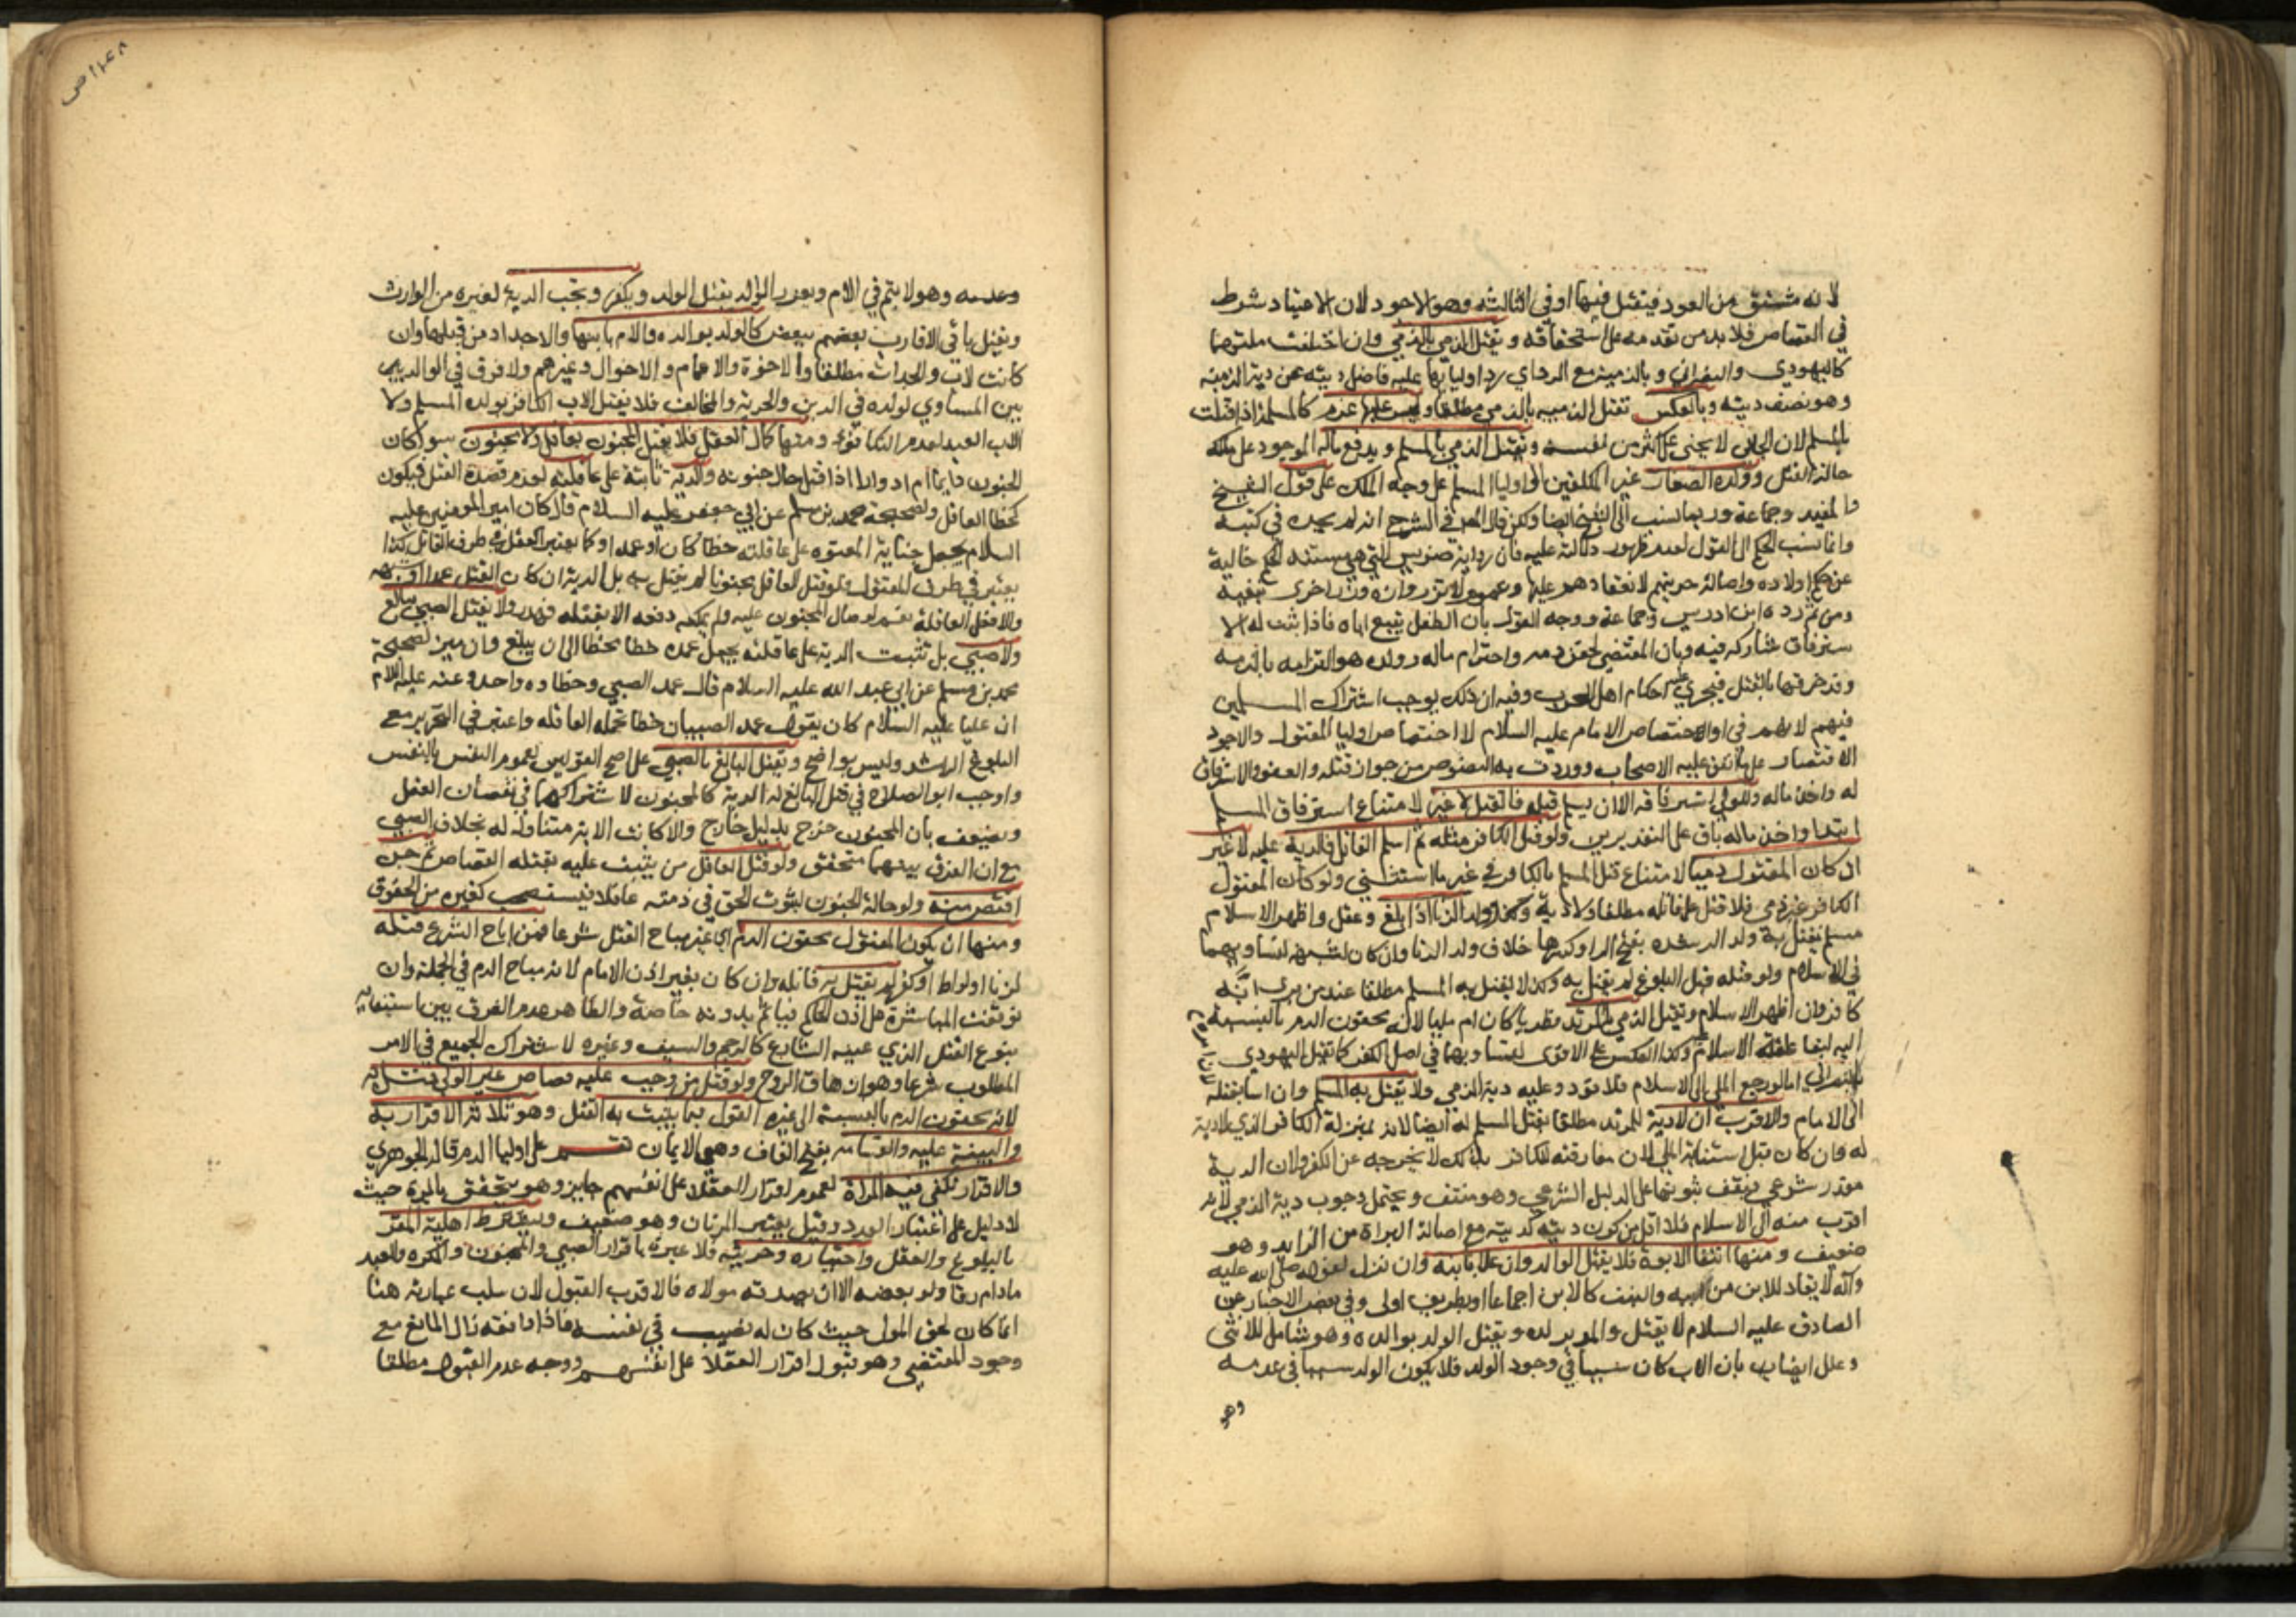 لانه مشتق من العود فيقتل فيها او في الثالثة وهو الاجود لان الاعتياد شرط
في القصاص فلا بد من تقدمه على استحقاقه ويقتل الذمي بالذمي وان اختلفت ملتهما
كاليهودي والنصراني وبالذمية مع الرد اي رد اوليائها عليه فاضل ديته عن دية الذمية
وهو نصف ديته وبالعكس تقتل الذمية بالذمي مطلقا وليس عليها غرم كالمسلمة اذا قتلت
بالمسلم لان الجاني لا يجني على اكثر من نفسه ويقتل الذمي بالمسلم ويدفع ماله الموجود على ملكه
حالة القتل وولده الصغار غير المكلفين الى اوليا المسلم على وجه الملك على قول الشيخ
والمفيد وجماعة وربما نسب الى الشيخ ايضا ولكن قال المص في الشرح انه لم يجده في كتبه
وانما نسب الحكم الى القول لعدم ظهور دلالة عليه فان رواية ضريس التي هي مستند الحكم خالية
عن حكم اولاده واصالة حريتهم لانعقادهم عليها وعموم لا تزر وازرة وزر اخرى تنفيه
ومن ثم رده ابن ادريس وجماعة ووجه القول بان الطفل يتبع اباه فاذا ثبت له الا
سترقاق شاركه فيه وبان المقتضي لحقن دمه واحترام ماله وولده هو التزامه بالذمة
وقد خرقها بالقتل فيجري عليه احكام اهل الحرب وفيه ان ذلك يوجب اشتراك المسلمين
فيهم لانهم فيء او اختصاص الامام عليه السلام لا اختصاص اوليا المقتول والاجود
الاقتصار على ما اتفق عليه الاصحاب ووردت به النصوص من جواز قتله والعفو والاسترقاق
له واخذ ماله وللولي استرقاقه الا ان يسلم قبله فالقتل لا غير لامتناع استرقاق المسلم
ابتدا واخذ ماله باق على التقديرين ولو قتل الكافر مثله ثم اسلم القاتل فالدية عليه لا غير
ان كان المقتول ذميا لامتناع قتل المسلم بالكافر في غير ما استثني ولو كان المقتول
الكافر غير ذمي فلا قتل على قاتله مطلقا ولا دية وولد الزنا اذا بلغ وعقل واظهر الاسلام
مسلم يقتل به ولد الرشده بفتح الرا وكسرها خلاف ولد الزنا وان كان لشبهة لتساويهما
في الاسلام ولو قتله قبل البلوغ لم يقتل به وكذا لا يقتل به المسلم مطلقا عند من يرى انه
كافر وان اظهر الاسلام ويقتل الذمي بالمرتد فطريا كان ام مليا لانه محقون الدم بالنسبة
اليه لبقا علقة الاسلام وكذا العكس على الاقوى لتساويهما في اصل الكفر كما يقتل اليهودي
بالنصراني اما لو رجع الملي الى الاسلام فلا قود وعليه دية الذمي ولا يقتل به المسلم وان اسا بقتله
الى الامام والاقرب ان لا دية للمرتد مطلقا بقتل المسلم له ايضا لانه بمنزلة الكافر الذي لا دية
له وان كان قبل استتابة الملي لان مفارقته للكافر بذلك لا يخرجه عن الكفر ولان الدية
مقدر شرعي فيقف ثبوتها على الدليل الشرعي وهو منتف ويحتمل وجوب دية الذمي لانه
اقرب منه الى الاسلام فلا اقل من كون ديته كديته مع اصالة البراة من الزايد وهو
ضعيف ومنها انتفا الابوة فلا يقتل الوالد وان علا بابنه وان نزل لقوله صلى الله عليه
وآله لا يقاد للابن من ابيه والبنت كالابن اجماعا او بطريق اولى وفي بعض الاخبار عن
الصادق عليه السلام لا يقتل والد بولده ويقتل الولد بوالده وهو شامل للانثى
وعلل ايضا بان الاب كان سببا في وجود الولد فلا يكون الولد سببا في عدمه
وهو
وعدمه وهو لا يتم في الام ويعزر الوالد بقتل الولد ويكفر وتجب الدية لغيره من الوارث
ويقتل باقي الاقارب بعضهم ببعض كالولد بوالده والام بابنها والاجداد من قبلها وان
كانت لاب والجدات مطلقا والاخوة والاعمام والاخوال وغيرهم ولا فرق في الوالد بين
بين المساوي لولده في الدين والحرية والمخالف فلا يقتل الاب الكافر بولده المسلم ولا
الاب العبد لعدم التكافؤ ومنها كمال العقل فلا يقتل المجنون بعاقل ولا مجنون سوا كان
الجنون دايما ام ادوارا اذا قتل حال جنونه والدية ثابتة على عاقلته لعدم قصده القتل فيكون
كخطا العاقل ولصحيحة محمد بن مسلم عن ابي جعفر عليه السلام قال كان امير المومنين عليه
السلام يجعل جناية المعتوه على عاقلته خطا كان او عمدا وكما يعتبر العقل في طرف القاتل كذا
يعتبر في طرف المقتول فلو قتل العاقل مجنونا لم يقتل به بل الدية ان كان القتل عمدا او شبهه
والا فعلى العاقلة نعم لو صال المجنون عليه ولم يمكنه دفعه الا بقتله فهدر ولا يقتل الصبي ببالغ
ولا صبي بل تثبت الدية على عاقلته بجعل عمده خطا محضا الى ان يبلغ وان ميز لصحيحة
محمد بن مسلم عن ابي عبد الله عليه السلام قال عمد الصبي وخطاوه واحد وعنه عليه السلام
ان عليا عليه السلام كان يقول عمد الصبيان خطا تحمله العاقلة واعتبر في التحرير مع
البلوغ الرشد وليس بواضح ويقتل البالغ بالصبي على اصح القولين لعموم النفس بالنفس
واوجب ابو الصلاح في قتل البالغ له الدية كالمجنون لاشتراكهما في نقصان العقل
ويضعف بان المجنون خرج بدليل خارج والا كانت الاية متناولة له بخلاف الصبي
مع ان الفرق بينهما متحقق ولو قتل العاقل من يثبت عليه بقتله القصاص ثم جن
اقتص منه ولو حالة الجنون لثبوت الحق في ذمته عاقلا فيستصحب كغيره من الحقوق
ومنها ان يكون المقتول محقون الدم اي غير مباح القتل شرعا فمن اباح الشرع قتله
لزنا او لواط او كفر لم يقتل به قاتله وان كان بغير اذن الامام لانه مباح الدم في الجملة وان
توقفت المباشرة على اذن الحاكم فياثم بدونه خاصة والظاهر عدم الفرق بين استيفايه
بنوع القتل الذي عينه الشارع كالرجم والسيف وغيره لاشتراك الجميع في الامر
المطلوب شرعا وهو ازهاق الروح ولو قتل من وجب عليه قصاص غير الولي قتل به
لانه محقون الدم بالنسبة الى غيره القول فيما يثبت به القتل وهو ثلاثة الاقرار به
والبينة عليه والقسامة بفتح القاف وهي الايمان تقسم على اوليا الدم قاله الجوهري
والاقرار يكفي فيه المراة لعموم اقرار العقلا على انفسهم جايز وهو يتحقق بالمرة حيث
لا دليل على اعتبار العدد وقيل يعتبر المرتان وهو ضعيف ويشترط اهلية المقر
بالبلوغ والعقل واختياره وحريته فلا عبرة باقرار الصبي والمجنون والمكره والعبد
مادام رقا ولو بعضه الا ان يصدقه مولاه فالاقرب القبول لان سلب عبارته هنا
انما كان لحق المولى حيث كان له نصيب في نفسه فاذا وافقه زال المانع مع
وجود المقتضي وهو قبول اقرار العقلا على انفسهم ووجه عدم القبول مطلقا